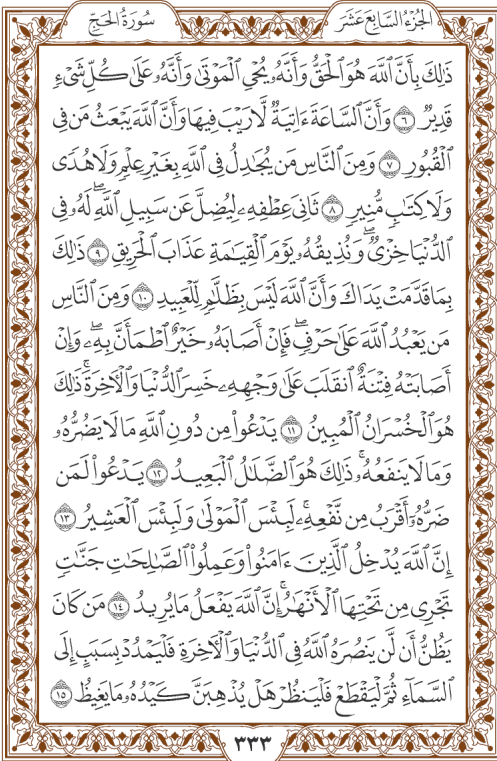 الجُزْءُ السَّابِعَ عَشَرَ
سُورَةُ الحَجِّ
ذَٰلِكَ بِأَنَّ ٱللَّهَ هُوَ ٱلْحَقُّ وَأَنَّهُۥ يُحْيِ ٱلْمَوْتَىٰ وَأَنَّهُۥ عَلَىٰ كُلِّ شَىْءٍ
قَدِيرٌ ٦ وَأَنَّ ٱلسَّاعَةَ ءَاتِيَةٌ لَّا رَيْبَ فِيهَا وَأَنَّ ٱللَّهَ يَبْعَثُ مَن فِى
ٱلْقُبُورِ ٧ وَمِنَ ٱلنَّاسِ مَن يُجَٰدِلُ فِى ٱللَّهِ بِغَيْرِ عِلْمٍ وَلَا هُدًى
وَلَا كِتَٰبٍ مُّنِيرٍ ٨ ثَانِىَ عِطْفِهِۦ لِيُضِلَّ عَن سَبِيلِ ٱللَّهِ ۖ لَهُۥ فِى
ٱلدُّنْيَا خِزْىٌ ۖ وَنُذِيقُهُۥ يَوْمَ ٱلْقِيَٰمَةِ عَذَابَ ٱلْحَرِيقِ ٩ ذَٰلِكَ
بِمَا قَدَّمَتْ يَدَاكَ وَأَنَّ ٱللَّهَ لَيْسَ بِظَلَّٰمٍ لِّلْعَبِيدِ ١٠ وَمِنَ ٱلنَّاسِ
مَن يَعْبُدُ ٱللَّهَ عَلَىٰ حَرْفٍ ۖ فَإِنْ أَصَابَهُۥ خَيْرٌ ٱطْمَأَنَّ بِهِۦ ۖ وَإِنْ
أَصَابَتْهُ فِتْنَةٌ ٱنقَلَبَ عَلَىٰ وَجْهِهِۦ خَسِرَ ٱلدُّنْيَا وَٱلْءَاخِرَةَ ۚ ذَٰلِكَ
هُوَ ٱلْخُسْرَانُ ٱلْمُبِينُ ١١ يَدْعُوا۟ مِن دُونِ ٱللَّهِ مَا لَا يَضُرُّهُۥ
وَمَا لَا يَنفَعُهُۥ ۚ ذَٰلِكَ هُوَ ٱلضَّلَٰلُ ٱلْبَعِيدُ ١٢ يَدْعُوا۟ لَمَن
ضَرُّهُۥٓ أَقْرَبُ مِن نَّفْعِهِۦ ۚ لَبِئْسَ ٱلْمَوْلَىٰ وَلَبِئْسَ ٱلْعَشِيرُ ١٣
إِنَّ ٱللَّهَ يُدْخِلُ ٱلَّذِينَ ءَامَنُوا۟ وَعَمِلُوا۟ ٱلصَّٰلِحَٰتِ جَنَّٰتٍ
تَجْرِى مِن تَحْتِهَا ٱلْأَنْهَٰرُ ۚ إِنَّ ٱللَّهَ يَفْعَلُ مَا يُرِيدُ ١٤ مَن كَانَ
يَظُنُّ أَن لَّن يَنصُرَهُ ٱللَّهُ فِى ٱلدُّنْيَا وَٱلْءَاخِرَةِ فَلْيَمْدُدْ بِسَبَبٍ إِلَى
ٱلسَّمَآءِ ثُمَّ لْيَقْطَعْ فَلْيَنظُرْ هَلْ يُذْهِبَنَّ كَيْدُهُۥ مَا يَغِيظُ ١٥
٣٣٣